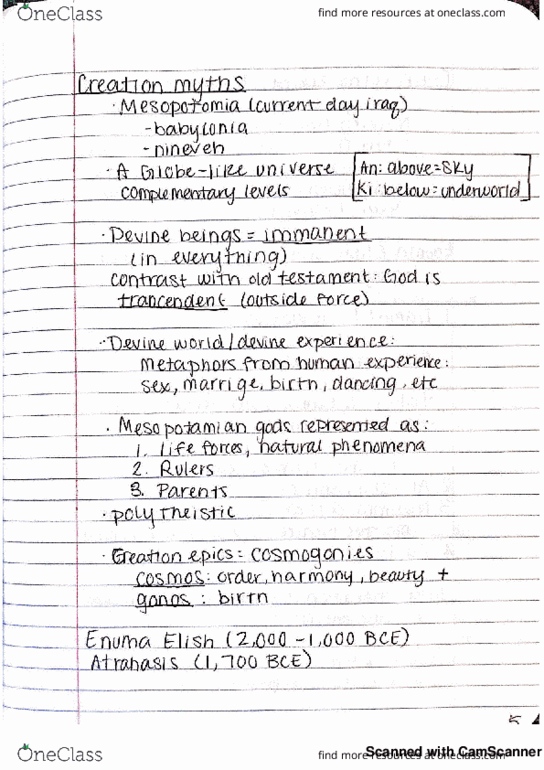 OneClass
find more resources at oneclass.com
Creation myths
· Mesopotomia (current day iraq)
- babylonia
- nineveh
· A Globe-like universe
complementary levels
An: above = Sky
Ki: below = underworld
· Devine beings = immanent
(in everything)
contrast with old testament: God is
trancendent (outside force)
· Devine world/devine experience:
metaphors from human experience:
sex, marrige, birth, dancing, etc
· Mesopotamian gods represented as:
1. Life forces, natural phenomena
2. Rulers
3. Parents
· polytheistic
· Creation epics = cosmogonies
cosmos: order, harmony, beauty +
gonos: birth
Enuma Elish (2,000 - 1,000 BCE)
Atrahasis (1,700 BCE)
OneClass
find more resources at oneclass.com
Scanned with CamScanner